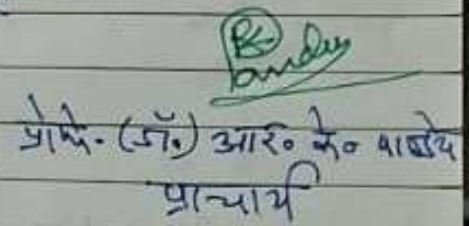 Pandey
प्रोफे. (डॉ.) आर० के० पाण्डेय
प्राचार्य